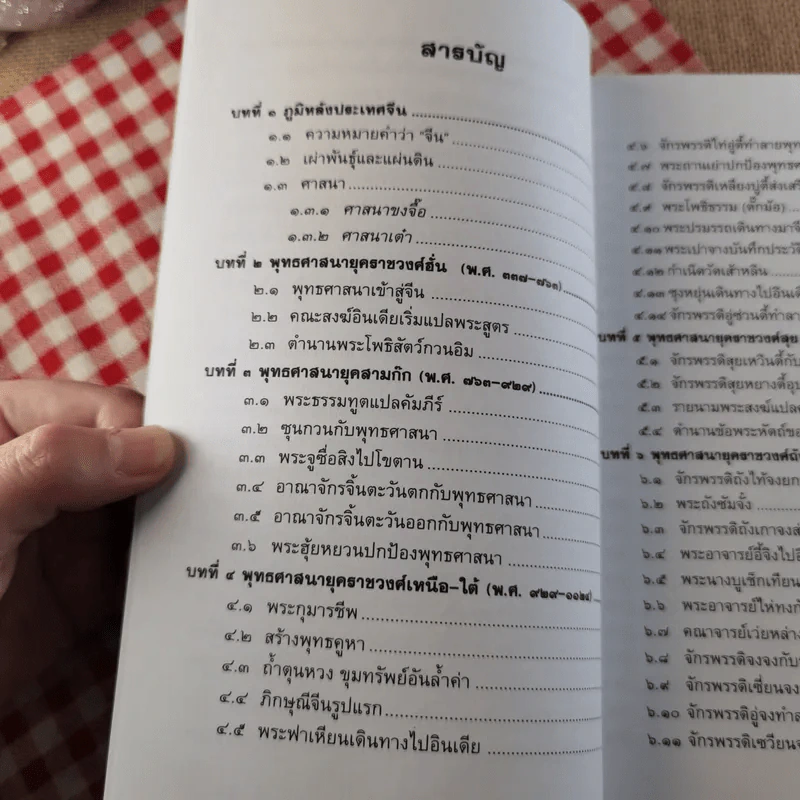 สารบัญ
บทที่ ๑ ภูมิหลังประเทศจีน
๑.๑ ความหมายคำว่า "จีน"
๑.๒ เผ่าพันธุ์และแผ่นดิน
๑.๓ ศาสนา
๑.๓.๑ ศาสนาขงจื๊อ
๑.๓.๒ ศาสนาเต๋า
บทที่ ๒ พุทธศาสนายุคราชวงศ์ฮั่น (พ.ศ. ๓๓๗-๗๖๓)
๒.๑ พุทธศาสนาเข้าสู่จีน
๒.๒ คณะสงฆ์อินเดียเริ่มแปลพระสูตร
๒.๓ ตำนานพระโพธิสัตว์กวนอิม
บทที่ ๓ พุทธศาสนายุคสามก๊ก (พ.ศ. ๗๖๓-๙๒๙)
๓.๑ พระธรรมทูตแปลคัมภีร์
๓.๒ ซุนกวนกับพุทธศาสนา
๓.๓ พระจูซื่อสิงไปโขตาน
๓.๔ อาณาจักรจิ้นตะวันตกกับพุทธศาสนา
๓.๕ อาณาจักรจิ้นตะวันออกกับพุทธศาสนา
๓.๖ พระฮุ้ยหยวนปกป้องพุทธศาสนา
บทที่ ๔ พุทธศาสนายุคราชวงศ์เหนือ-ใต้ (พ.ศ. ๙๒๙-๑๑๒๔)
๔.๑ พระกุมารชีพ
๔.๒ สร้างพุทธคูหา
๔.๓ ถ้ำตุนหวง ขุมทรัพย์อันล้ำค่า
๔.๔ ภิกษุณีจีนรูปแรก
๔.๕ พระฟาเหียนเดินทางไปอินเดีย
๔.๖ จักรพรรดิไท่อู่ตี้ทำลายพุท
๔.๗ พระถานเย่าปกป้องพุทธศา
๔.๘ จักรพรรดิเหลียงบู่ตี้ส่งเสริ
๔.๙ พระโพธิธรรม (ตั๊กม้อ)
๔.๑๐ พระปรมรรถเดินทางมาจี
๔.๑๑ พระเปาจางบันทึกประวัติ
๔.๑๒ กำเนิดวัดเส้าหลิน
๔.๑๓ ซุงหยุ่นเดินทางไปอินเดี
๔.๑๔ จักรพรรดิอู่ซ่วนตี้ทำลา
บทที่ ๕ พุทธศาสนายุคราชวงศ์สุย
๕.๑ จักรพรรดิสุยเหวินตี้กับ
๕.๒ จักรพรรดิสุยหยางตี้อุป
๕.๓ รายนามพระสงฆ์แปลค
๕.๔ ตำนานข้อพระหัตถ์ขอ
บทที่ ๖ พุทธศาสนายุคราชวงศ์ถัง
๖.๑ จักรพรรดิถังไท้จงยก
๖.๒ พระถังซัมจั๋ง
๖.๓ จักรพรรดิถังเกาจงส่
๖.๔ พระอาจารย์อี้จิงไปอิ
๖.๕ พระนางบูเช็กเทียน
๖.๖ พระอาจารย์ไห่ทงก
๖.๗ คณาจารย์เว่ยหล่าง
๖.๘ จักรพรรดิจงจงกับ
๖.๙ จักรพรรดิเซี่ยนจง
๖.๑๐ จักรพรรดิอู่จงทำล
๖.๑๑ จักรพรรดิเซวียนจ